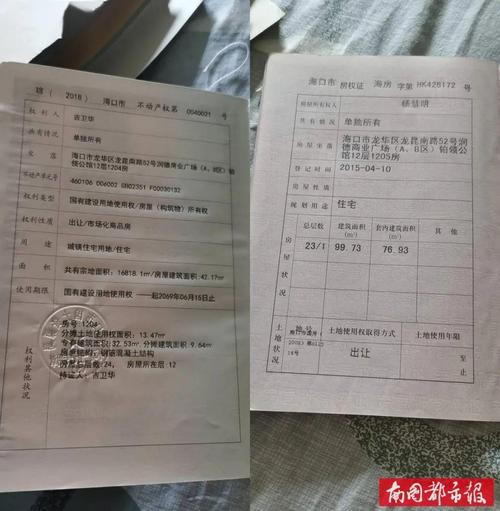 琼 (2018) 海口市 不动产权第 0040031 号
权利人 吉卫华
共有情况 单独所有
坐落 海口市龙华区龙昆南路52号润德商业广场(A、B区)铂
领公馆12层1204房
不动产单元号 460106 006002 GB02351 F00030132
权利类型 国有建设用地使用权/房屋(构筑物)所有权
权利性质 出让/市场化商品房
用途 城镇住宅用地/住宅
面积 共有宗地面积:16818.1㎡/房屋建筑面积:42.17㎡
使用期限 国有建设用地使用权 一起2069年06月15日止
权利其他状况
房号:1204
分摊土地使用权面积:13.47㎡
专有建筑面积:32.53㎡,分摊建筑面积:9.64㎡
房屋结构:钢筋混凝土结构
房屋总层数:24,房屋所在层:12
持证人:吉卫华
海口市 房权证 海房 字第 HK426172 号
房屋所有权人
共有情况 单独所有
房屋坐落 海口市龙华区龙昆南路52号润
德商业广场(A、B区)铂领公
馆12层1205房
登记时间 2015-04-10
房屋性质
规划用途 住宅
房屋状况 总层数 建筑面积(㎡) 套内建筑面积(㎡) 其他
99.73 76.93
土地状况 地号 土地使用权取得方式 土地使用年限
出让 至 止
南国都市报